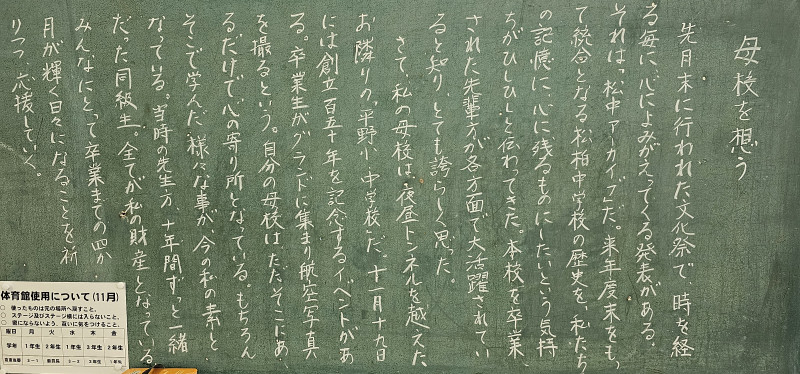 母校を想う
先月末に行われた文化祭で、時を経
る毎に、心によみがえってくる発表がある。
それは「松中アーカイブ」だ。来年度末をも
て統合となる松柏中学校の歴史を、私たち
の記憶に、心に残るものにしたいという気持
ちがひしひしと伝わってきた。本校を卒業
された先輩方が各方面で大活躍されてい
ると知り、とても誇らしく思った。
さて、私の母校は、夜昼トンネルを越えた
お隣りの「平野小・中学校」だ。十一月十九日
には創立百五十年を記念するイベントがあ
る。卒業生がグランドに集まり航空写真
を撮るという。自分の母校はただそこにあ
るだけで心の寄り所となっている。もちろん
そこで学んだ様々な事が、今の私の素と
なっている。当時の先生方、十年間ずっと一緒
だった同級生。全てが私の財産となっている。
みんなにとって卒業までの四か
月が輝く日々になることを祈
りつつ、応援していく。
体育館使用について(11月)
○ 使ったものは元の場所へ戻すこと。
○ ステージ及びステージ横には入らないこと。
○ 密にならないよう、互いに気をつけること。
曜日 月 火 水 木 金
学年 1年生 2年生 1年生 3年生 2年生